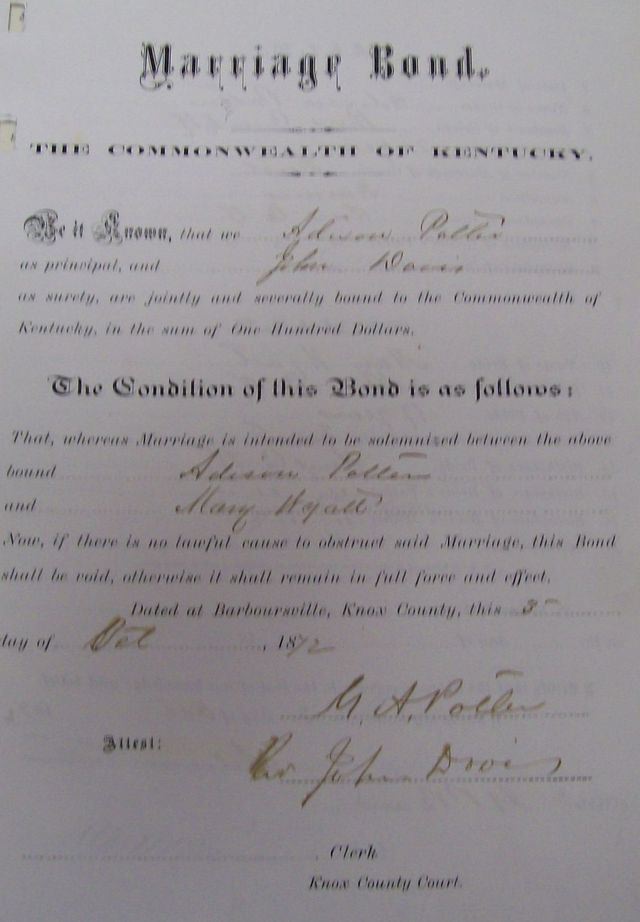 Marriage Bond.
THE COMMONWEALTH OF KENTUCKY.
Be it Known, that we Adison Potter
as principal, and John Davis
as surety, are jointly and severally bound to the Commonwealth of
Kentucky, in the sum of One Hundred Dollars.
The Condition of this Bond is as follows:
That, whereas Marriage is intended to be solemnized between the above
bound Adison Potter
and Mary Hyatt
Now, if there is no lawful cause to obstruct said Marriage, this Bond
shall be void, otherwise it shall remain in full force and effect.
Dated at Barboursville, Knox County, this 3
day of Oct, 1872
A. Potter
Attest:
John Davis
Clerk
Knox County Court.